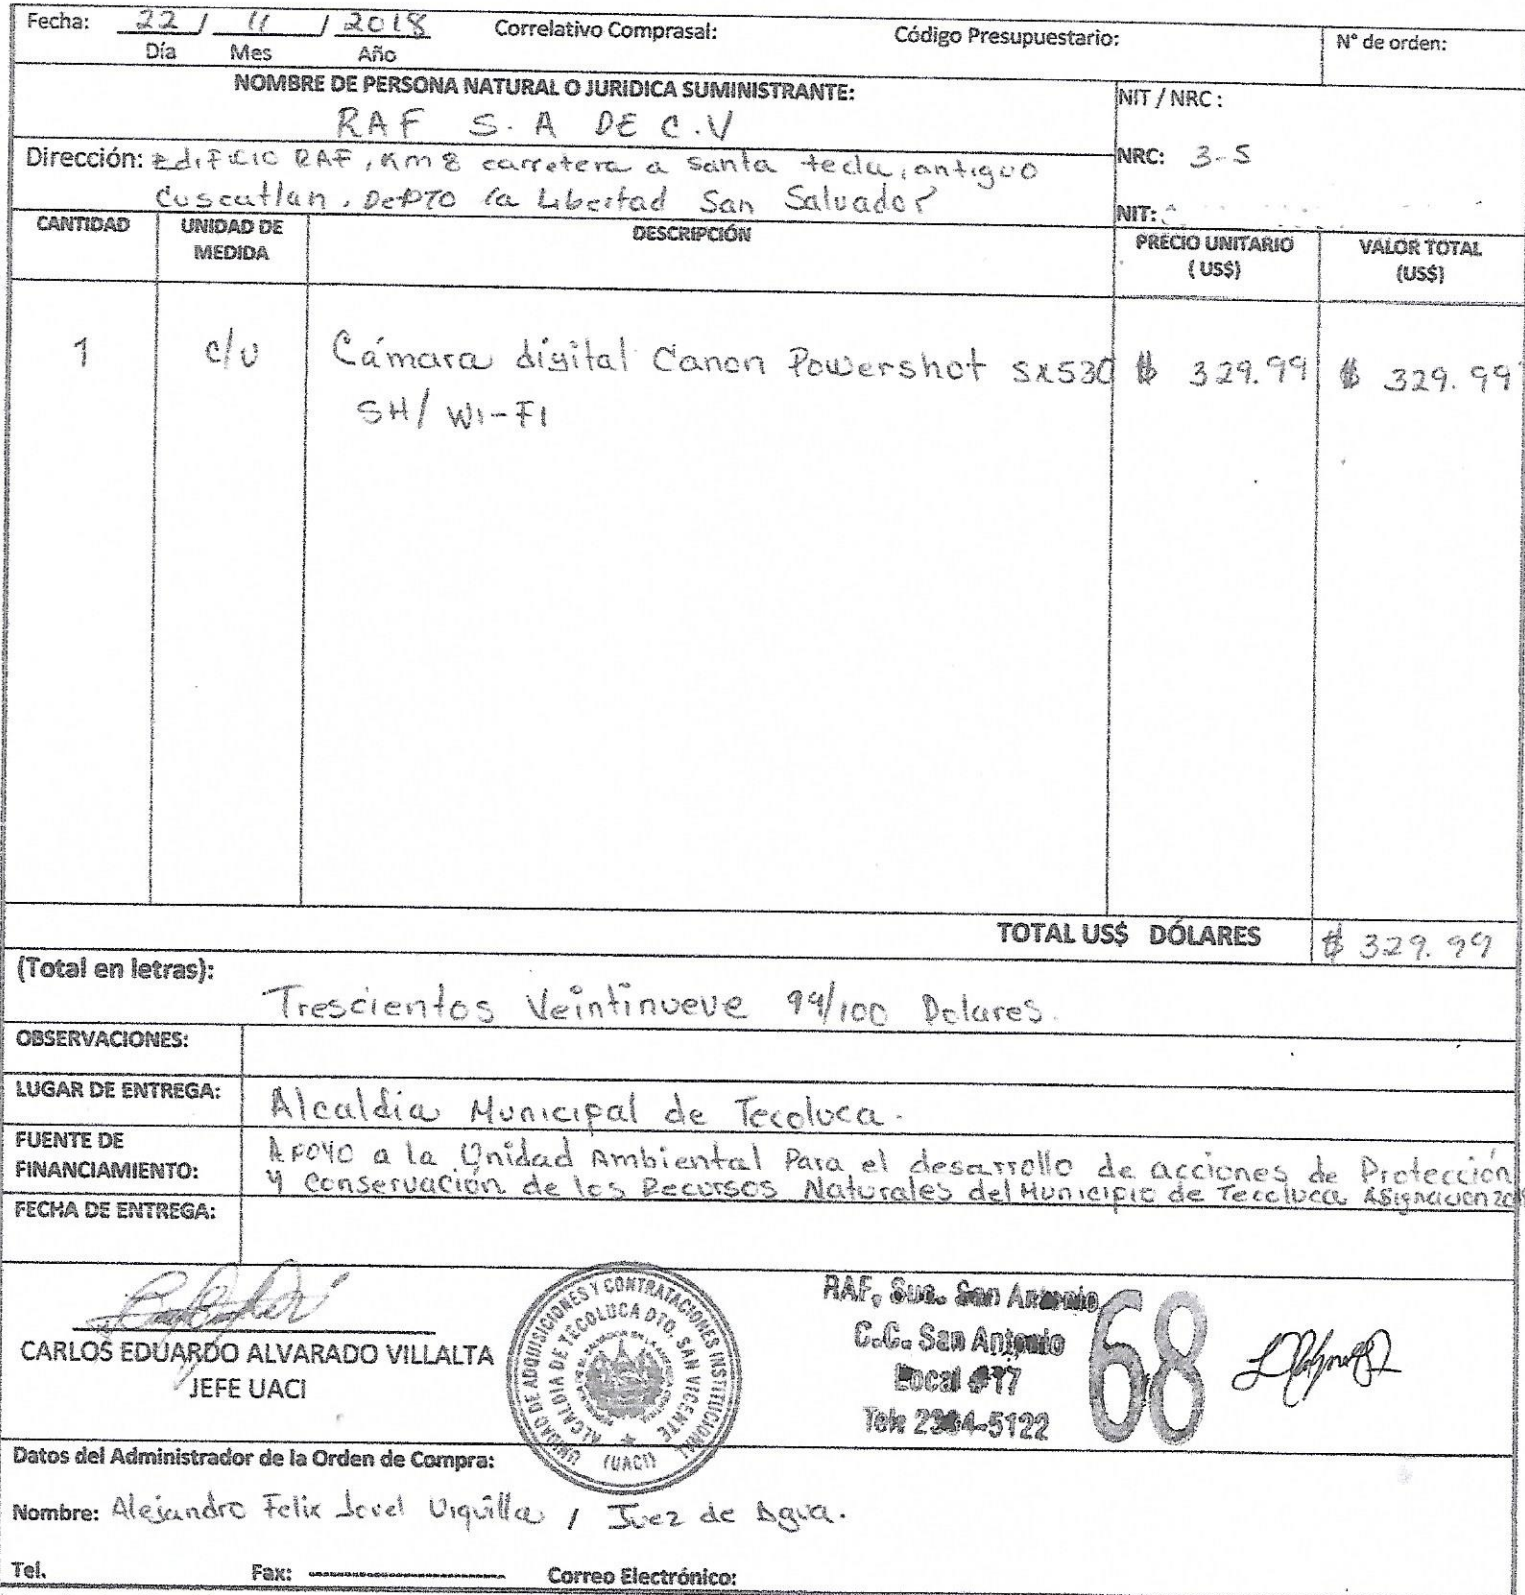 Fecha: 22 / 11 / 2018 Correlativo Comprasal: Código Presupuestario: N° de orden:
Día Mes Año
NOMBRE DE PERSONA NATURAL O JURIDICA SUMINISTRANTE: NIT / NRC :
RAF S. A DE C.V
Dirección: EdiFicio RAF, Km 8 carretera a santa tecla, antiguo NRC: 3-5
Cuscatlan, DePTO la Libertad San Salvador NIT:
CANTIDAD UNIDAD DE MEDIDA DESCRIPCIÓN PRECIO UNITARIO ( US$) VALOR TOTAL (US$)
1 c/u Cámara digital Canon Powershot SX530 $ 329.99 $ 329.99
SH/ WI-FI
TOTAL US$ DÓLARES $ 329.99
(Total en letras):
Trescientos Veintinueve 99/100 Dolares.
OBSERVACIONES:
LUGAR DE ENTREGA: Alcaldia Municipal de Tecoluca.
FUENTE DE FINANCIAMIENTO: APOYO a la Unidad Ambiental Para el desarrollo de acciones de Protección
y Conservación de los Recursos Naturales del Municipio de Tecoluca Asignacion
FECHA DE ENTREGA:
CARLOS EDUARDO ALVARADO VILLALTA
JEFE UACI
UNIDAD DE ADQUISICIONES Y CONTRATACIONES INSTITUCIONAL
ALCALDIA DE TECOLUCA DTO. SAN VICENTE
(UACI)
RAF, Suc. San Antonio
C.C. San Antonio
Local #17
Tel: 2304-5122
68
Datos del Administrador de la Orden de Compra:
Nombre: Alejandro Felix Jovel Urquilla / Juez de Agua.
Tel. Fax: Correo Electrónico: